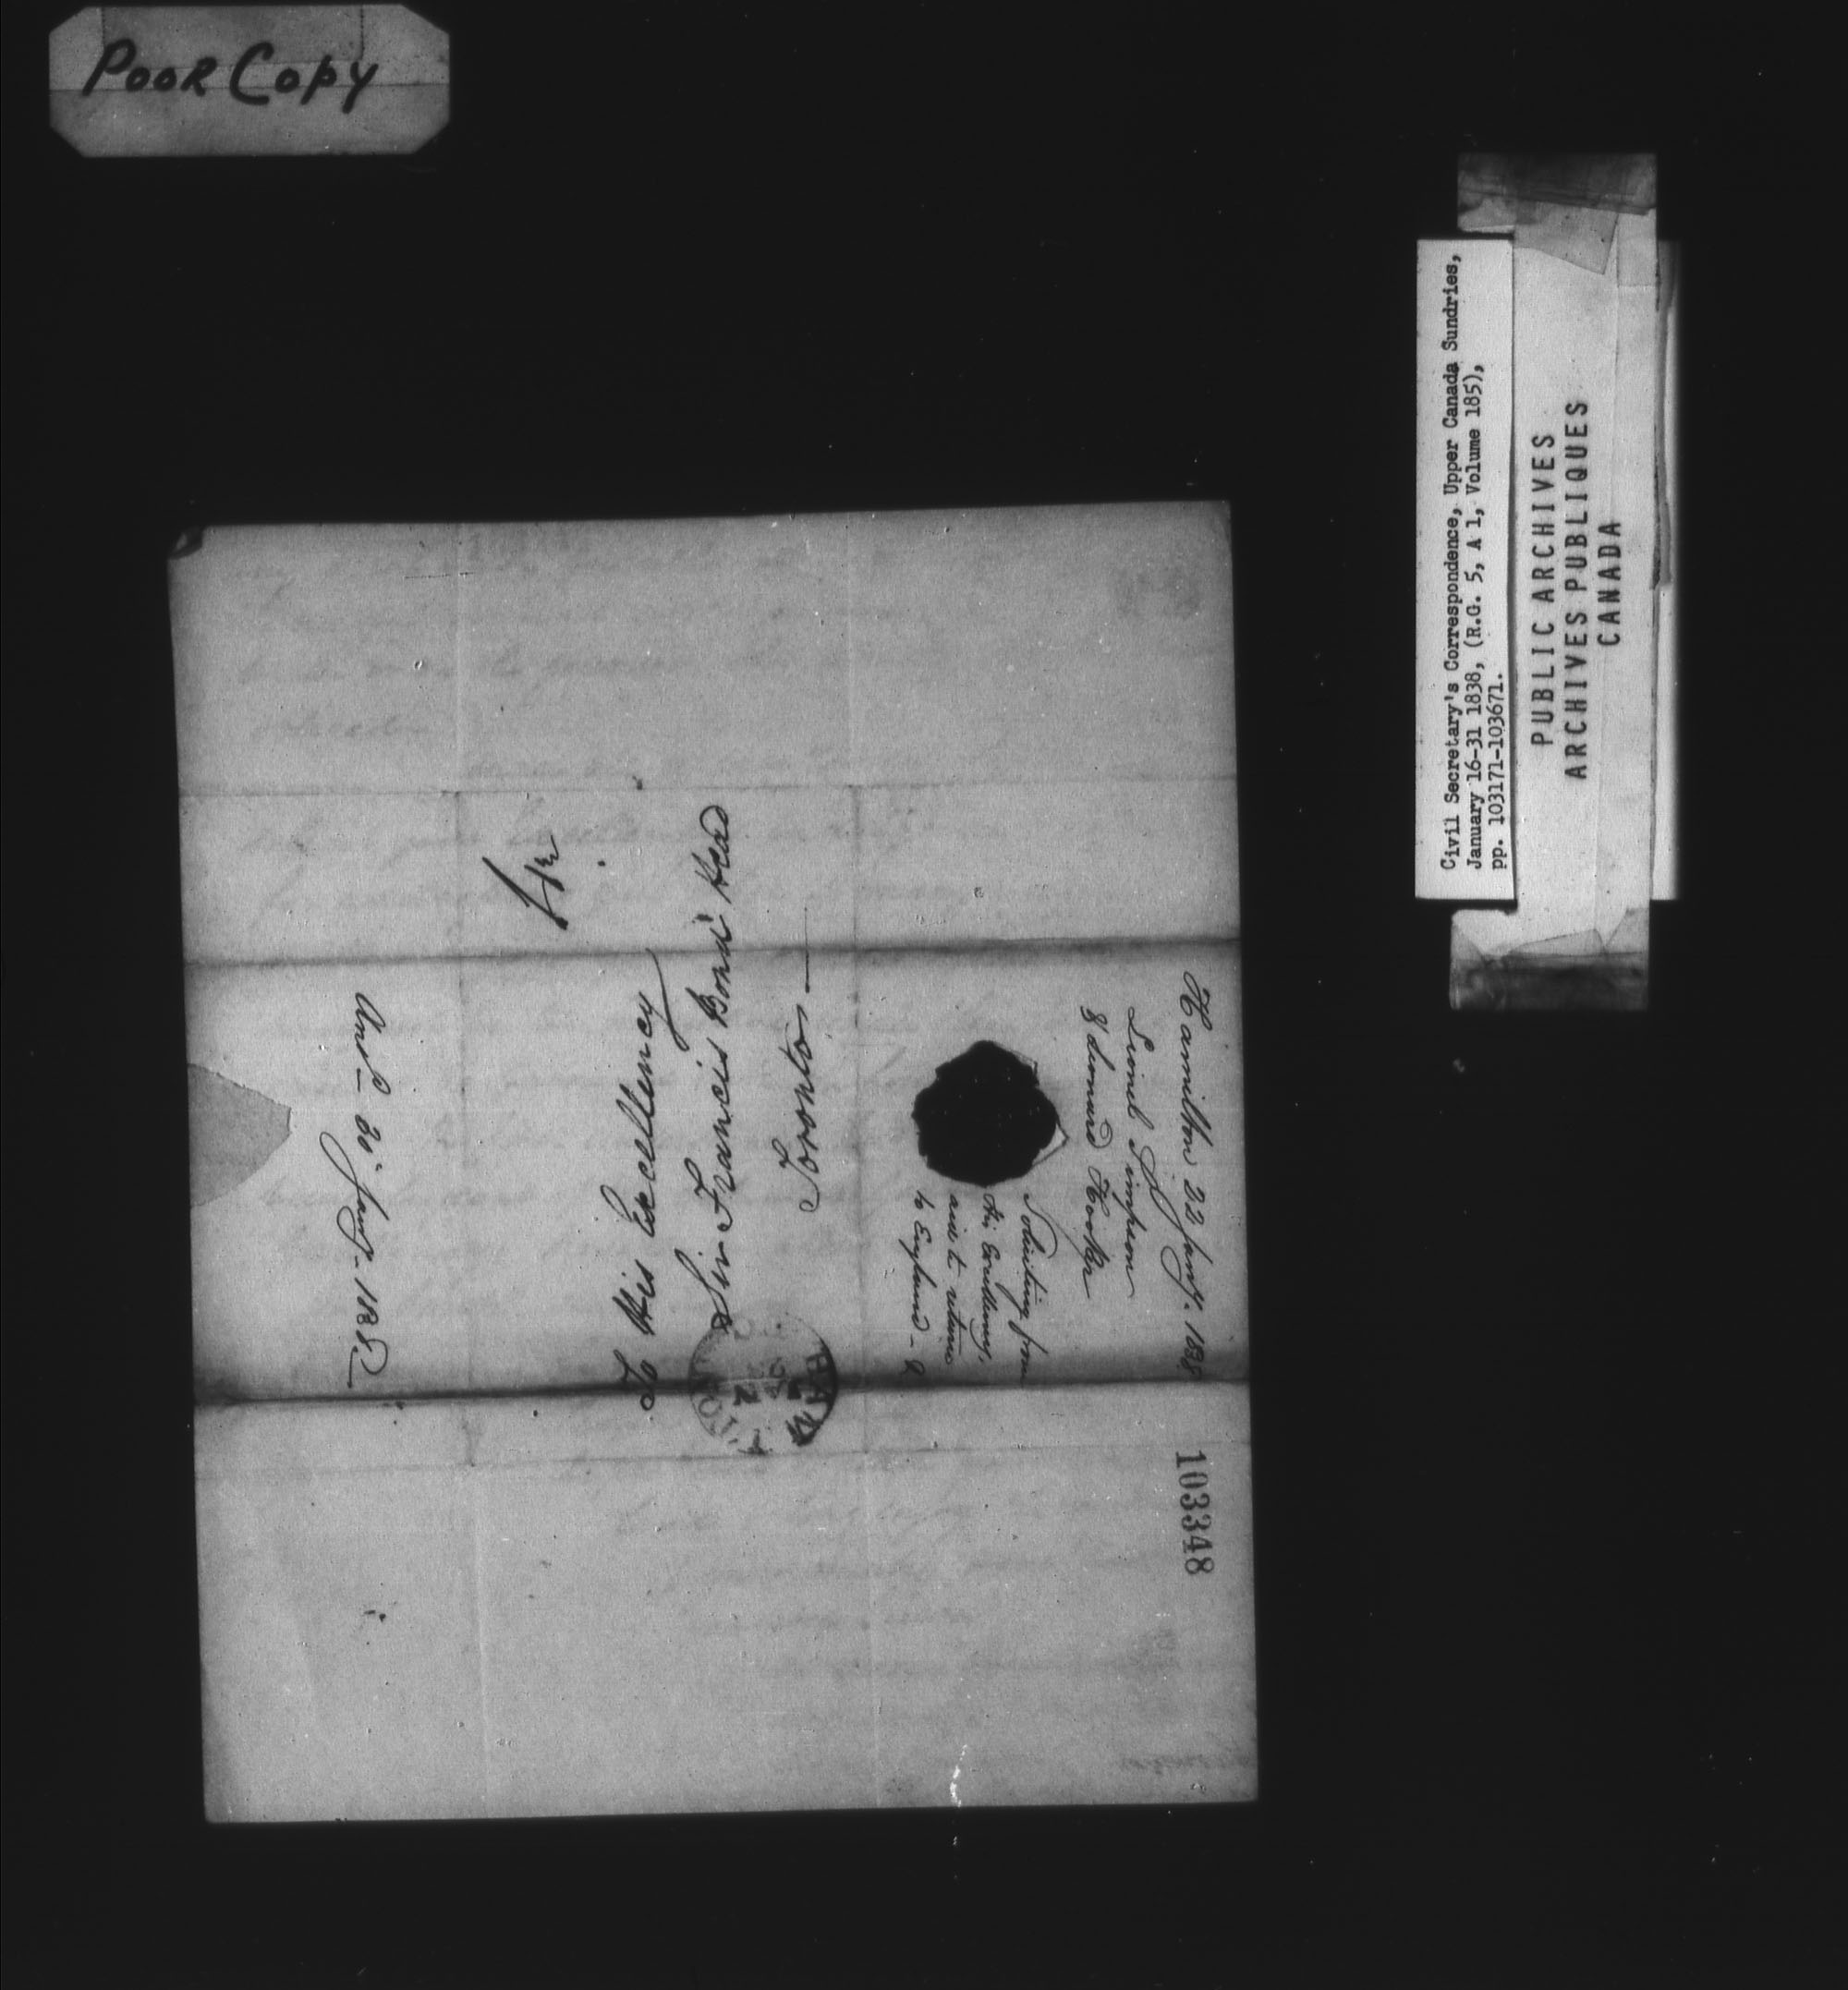 Poor Copy
Civil Secretary's Correspondence, Upper Canada Sundries,
January 16-31 1838, (R.G. 5, A 1, Volume 185),
pp. 103171-103671.
PUBLIC ARCHIVES
ARCHIVES PUBLIQUES
CANADA
Hamilton 22 Jany. 1838
Lionel Simpson
Edmund Hooker
Soliciting from
His Excellency,
aid to return
to England
103348
To His Excellency
Sir Francis Bond Head
Toronto
HAM
Jany - 1838